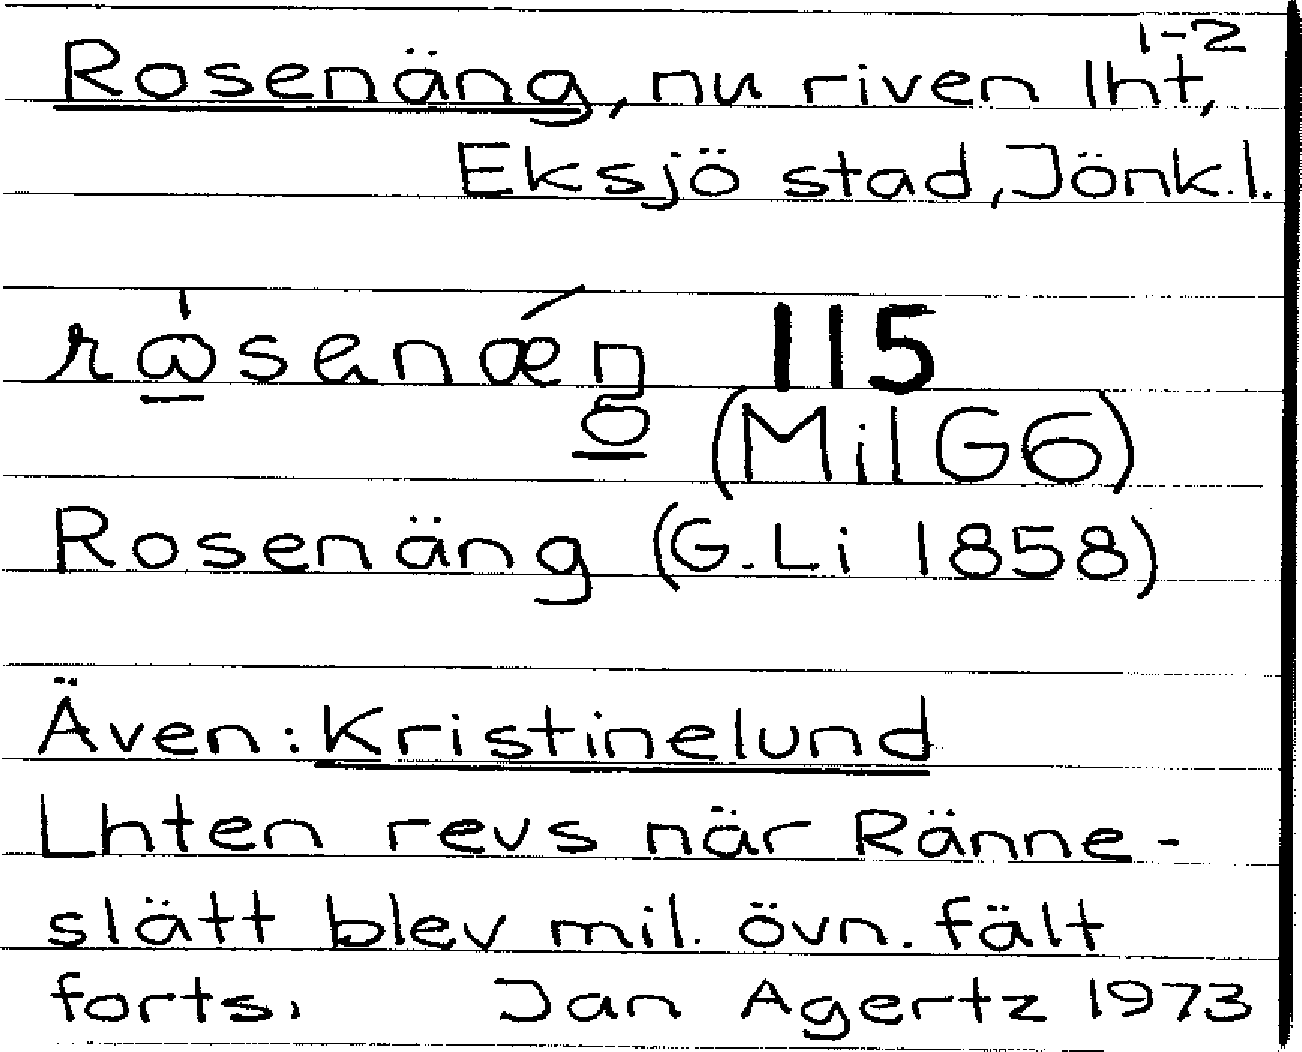 1-2
Rosenäng, nu riven lht,
Eksjö stad, Jönk.l.
115
(Mil G6)
Rosenäng (G.Li 1858)
Även: Kristinelund
Lhten revs när Ränne-
slätt blev mil. övn. fält
forts. Jan Agertz 1973